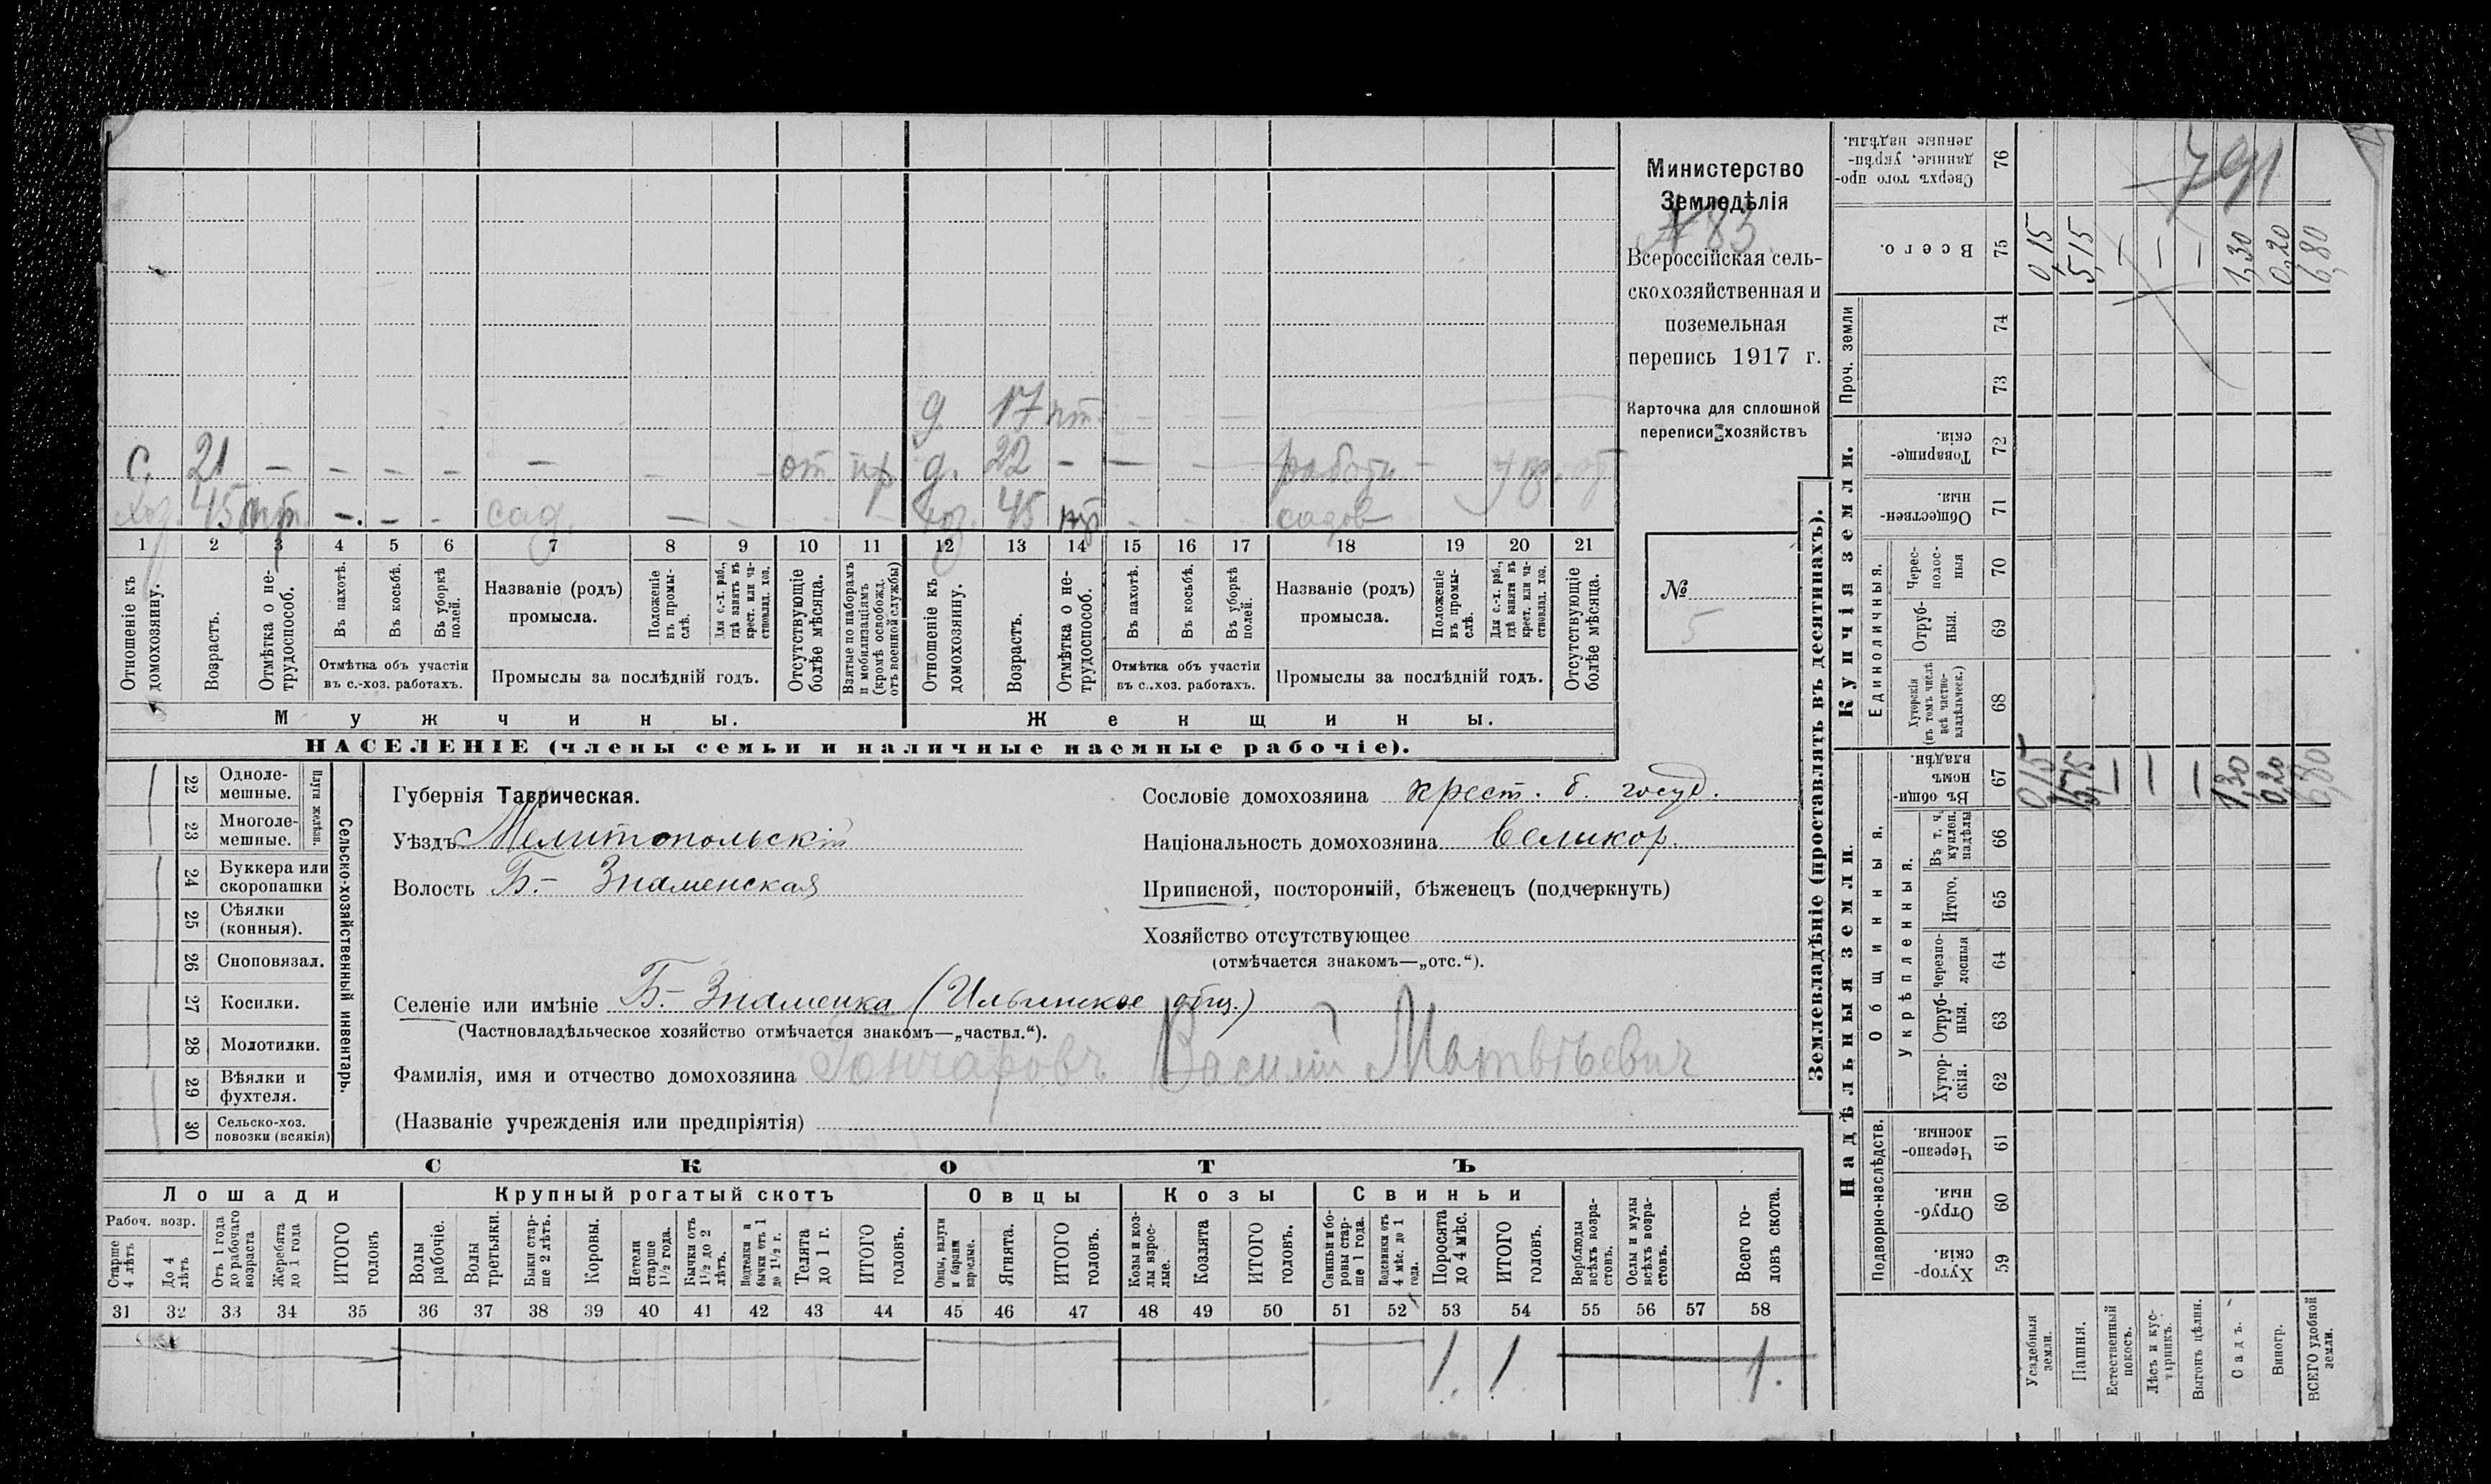 Министерство
Земледѣлія
№ 83.
Всероссійская сель-
скохозяйственная и
поземельная
перепись 1917 г.
Карточка для сплошной
переписи хозяйствъ
№
5
д. 17 нт. - - -
с. 21 - - - - - - - от. пр д. 22 - - -
хоз. 45 нтр. - - - сад. - - хоз. 45 нтр - - садов
1 2 3 4 5 6 7 8 9 10 11 12 13 14 15 16 17 18 19 20 21
Отношеніе къ домохозяину.
Возрастъ.
Отмѣтка о не-трудоспособ.
Въ пахотѣ.
Въ косьбѣ.
Въ уборкѣ полей.
Отмѣтка объ участіи
въ с.-хоз. работахъ.
Названіе (родъ)
промысла.
Положеніе въ промы-слѣ.
Для с.-х. раб., гдѣ занятъ въ крест. или ча-ствовлад. хоз.
Промыслы за послѣдній годъ.
Отсутствующіе болѣе мѣсяца.
Взятые по наборамъ и мобилизаціямъ (кромѣ освобожд. отъ военной службы)
Отношеніе къ домохозяину.
Возрастъ.
Отмѣтка о не-трудоспособ.
Въ пахотѣ.
Въ косьбѣ.
Въ уборкѣ полей.
Отмѣтка объ участіи
въ с.-хоз. работахъ.
Названіе (родъ)
промысла.
Положеніе въ промы-слѣ.
Для с.-х. раб., гдѣ занята въ крест. или ча-ствовлад. хоз.
Промыслы за послѣдній годъ.
Отсутствующіе болѣе мѣсяца.
Мужчины.
Женщины.
НАСЕЛЕНІЕ (члены семьи и наличные наемные рабочіе).
Сельско-хозяйственный инвентарь.
Плуги желѣзн.
22 Одноле-мешные.
23 Многоле-мешные.
24 Буккера или скоропашки
25 Сѣялки (конныя).
26 Сноповязал.
27 Косилки.
28 Молотилки.
29 Вѣялки и фухтеля.
30 Сельско-хоз. повозки (всякія)
Губернія Таврическая.
Уѣздъ Мелитопольскій
Волость Б.- Знаменская
Сословіе домохозяина крест. б. госуд.
Національность домохозяина великор.
Приписной, посторонній, бѣженецъ (подчеркнуть)
Хозяйство отсутствующее
(отмѣчается знакомъ—„отс.“).
Селеніе или имѣніе Б.- Знаменка (Ильинское общ.)
(Частновладѣльческое хозяйство отмѣчается знакомъ—„частвл.“).
Фамилія, имя и отчество домохозяина Гончаровъ Василій Матвѣевич
(Названіе учрежденія или предпріятія)
СКОТЪ
Лошади
Крупный рогатый скотъ
Овцы
Козы
Свиньи
Рабоч. возр.
Старше 4 лѣтъ
До 4 лѣтъ
Отъ 1 года до рабочаго возраста
Жеребята до 1 года
ИТОГО головъ
Волы рабочіе.
Волы третьяки.
Быки стар-ше 2 лѣтъ.
Коровы.
Нетели старше 1½ года.
Бычки отъ 1½ до 2 лѣтъ.
Подтелки и бычки отъ 1 до 1½ г.
Телята до 1 г.
ИТОГО головъ.
Овцы, валухи и бараны взрослые.
Ягнята.
ИТОГО головъ.
Козы и коз-лы взрос-лые.
Козлята
ИТОГО головъ.
Свиньи и бо-ровы стар-ше 1 года.
Подсвинки отъ 4 мѣс. до 1 года.
Поросята до 4 мѣс.
ИТОГО головъ.
Верблюды всѣхъ возра-стовъ.
Ослы и мулы всѣхъ возра-стовъ.
Всего го-ловъ скота.
31 32 33 34 35 36 37 38 39 40 41 42 43 44 45 46 47 48 49 50 51 52 53 54 55 56 57 58
1. 1 1.
Землевладѣніе (проставлять въ десятинахъ).
Надѣльныя земли.
Купчія земли.
Проч. земли
Подворно-наслѣдств.
Общинныя.
Укрѣпленныя.
Единоличныя.
59 Хутор-скія.
60 Отруб-ныя.
61 Черезпо-лосныя.
62 Хутор-скія.
63 Отруб-ныя.
64 Черезпо-лосныя
65 Итого.
66 Въ т. ч. куплен. надѣлы
67 Въ общи-номъ владѣн.
68 Хуторскія (въ томъ числѣ всѣ частно-владѣльческ.)
69 Отруб-ныя.
70 Черес-полос-ныя
71 Обществен-ныя.
72 Товарище-скія.
73
74
75 Всего.
76 Сверхъ того про-данные, укрѣп-ленные надѣлы.
Усадебныя земли. 0,15 0,15
Пашня. 5,15 5,15
Естественный покосъ. - -
Лѣсъ и кус-тарникъ. - -
Выгонъ цѣлин. - -
Садъ. 1,30 1,30
Виногр. 0,20 0,20
ВСЕГО удобной земли. 6,80 6,80